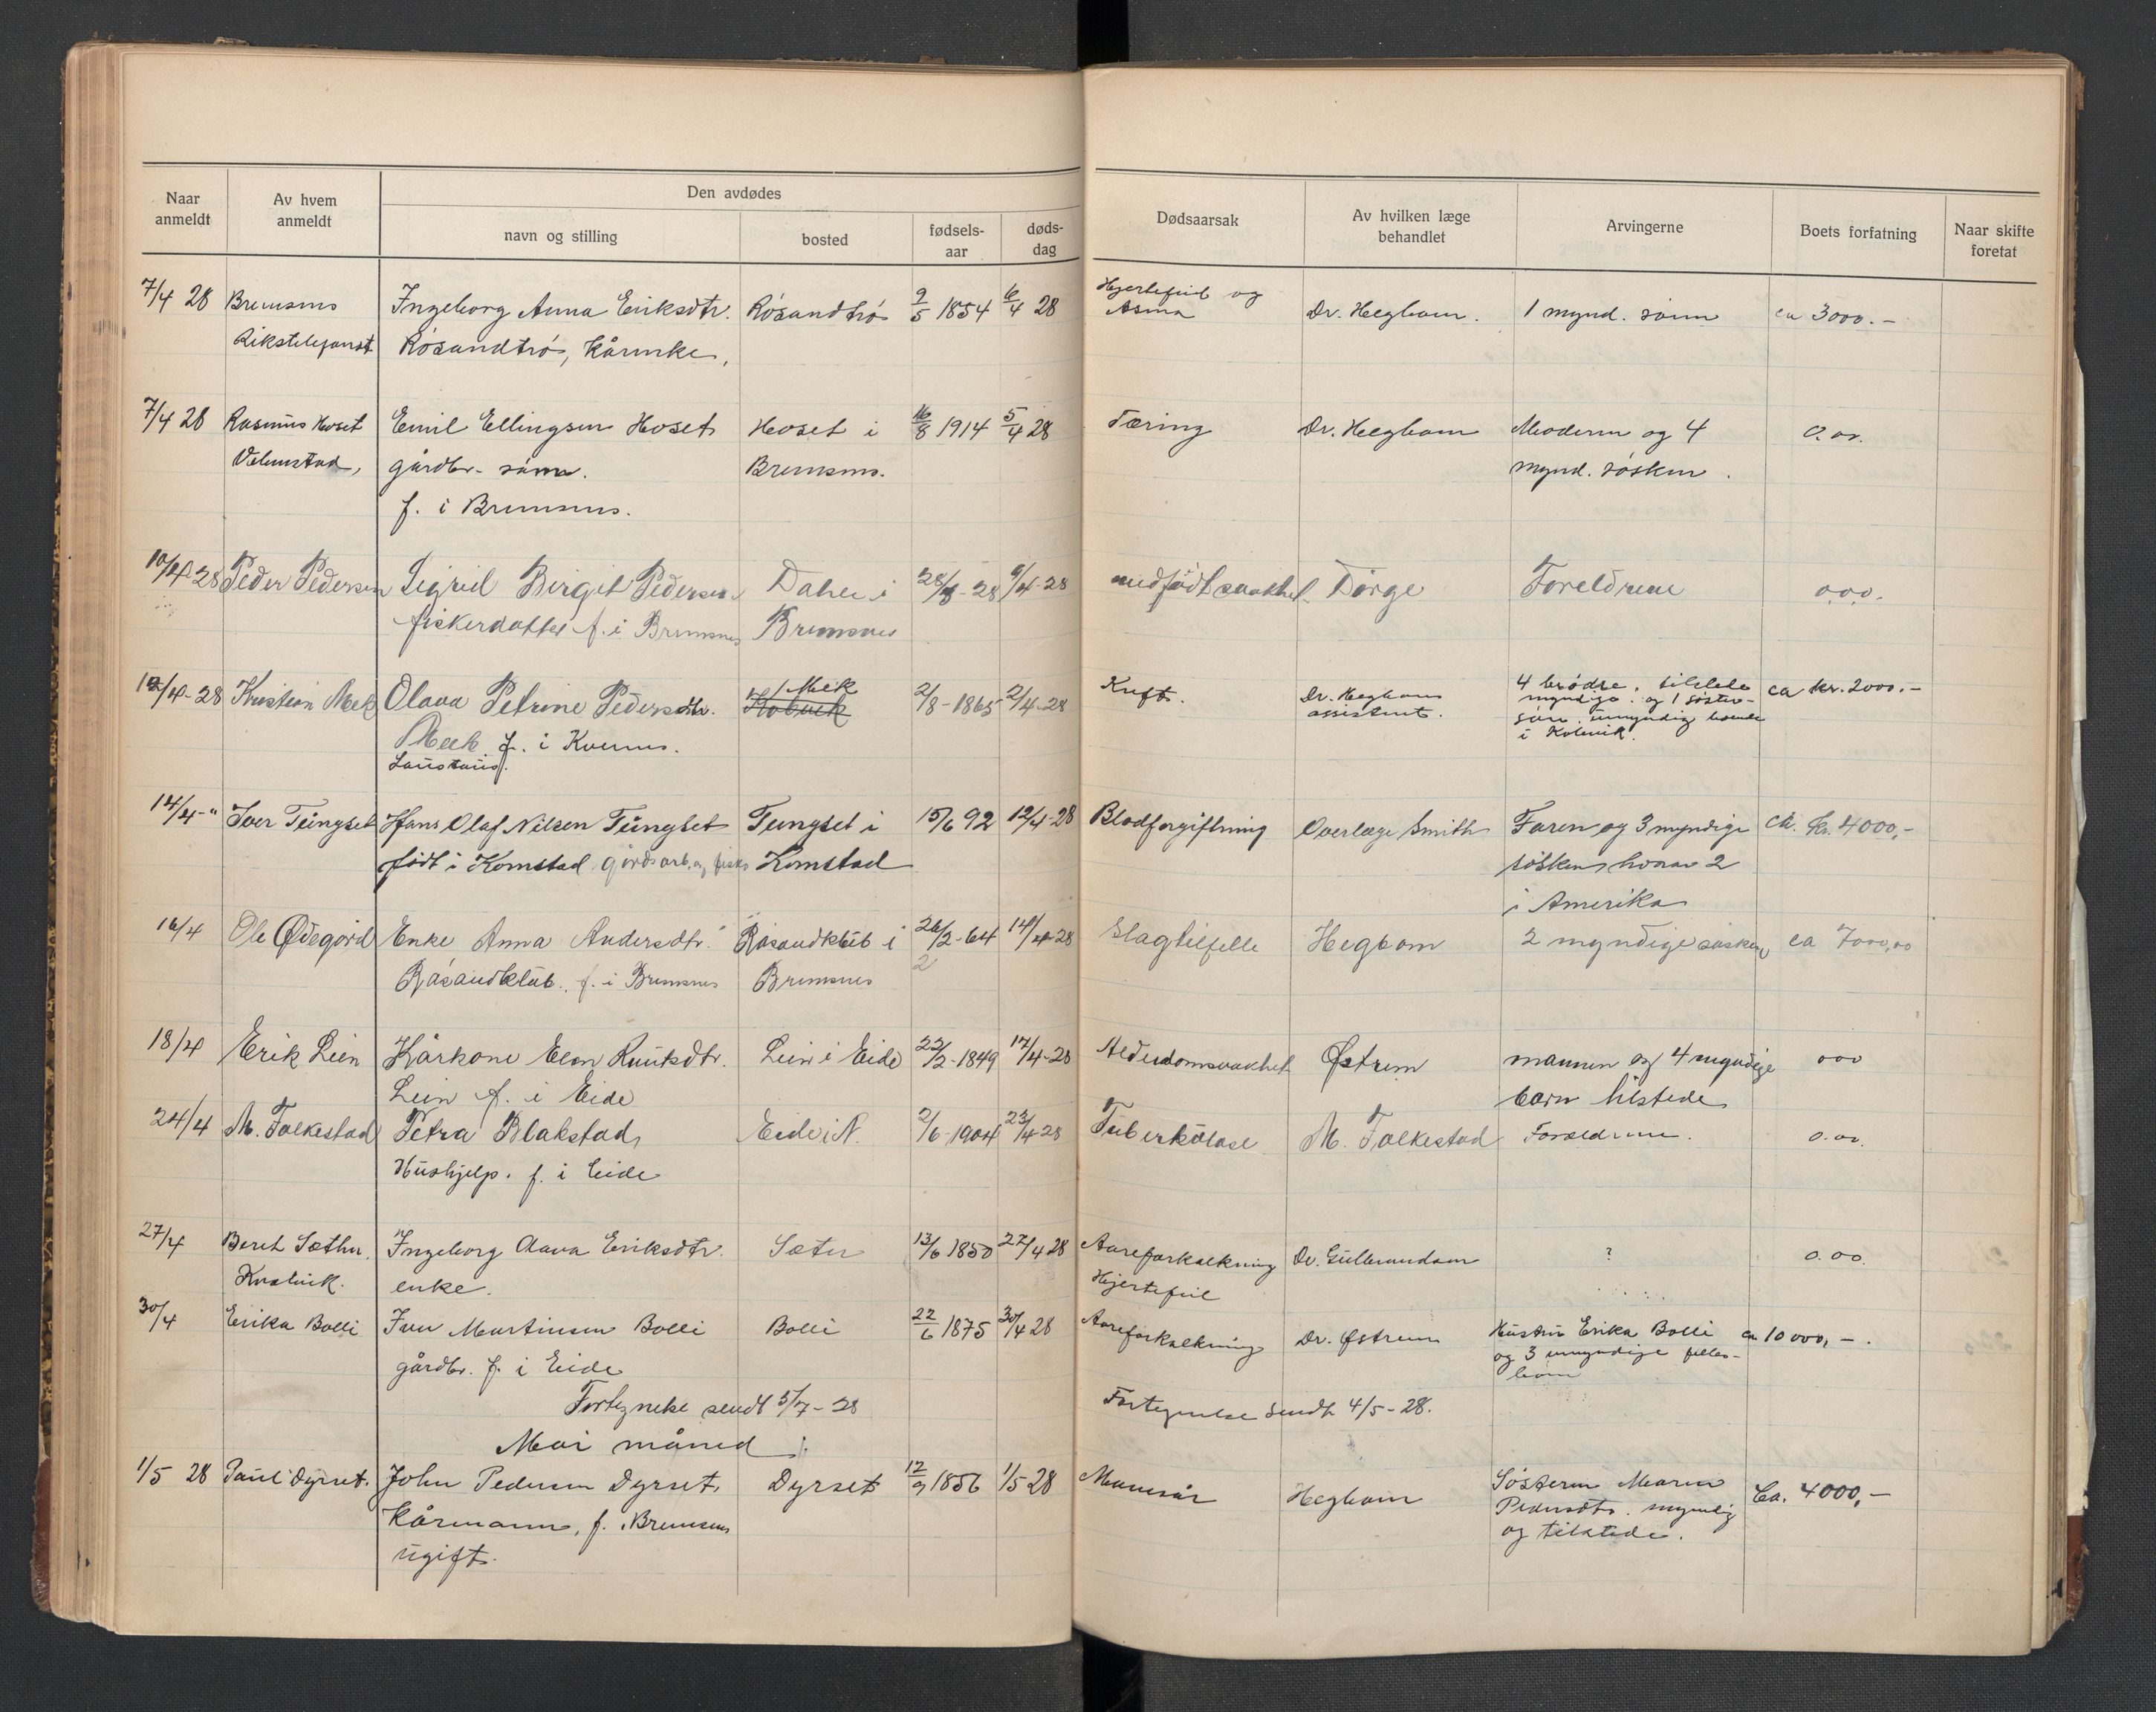 Naar anmeldt
Av hvem anmeldt
Den avdødes
navn og stilling
bosted
fødsels-aar
døds-dag
Dødsaarsak
Av hvilken læge behandlet
Arvingerne
Boets forfatning
Naar skifte foretat
7/4 28 Bremsnes Ingeborg Anna Eriksdtr. Røsandtrø 9/5 1854 6/4 28 Hjertefeil og Dr. Hegbom. 1 mynd. sønn ca 3000.-
Rikstelefonst Røsandtrø, Kårenke, Asma
7/4 28 Rasmus Hoset Emil Ellingsen Hoset Hoset i 16/8 1914 5/4 28 Tæring Dr. Hegbom Moderen og 4 0.00.
gårdbr. sønn. Bremsnes. mynd. søsken.
f. i Bremsnes.
10/4 28 Peder Pedersen Sigrid Birgit Pedersen Dahle i 28/3-28 9/4-28 medfødt svakhet Dørge Foreldrene 000.
fiskerdatter f. i Bremsnes Bremsnes
12/4-28 Kristian Mek Olava Petrine Pedersdtr. Mek 2/8-1865 2/4-28 Kreft. Dr. Hegboms 4 brødre, tilstede ca kr. 2000.-
Meek f. i Kvernes. assistent. myndige. og 1 søster-
Laustaus. søn. umyndig boende
i Kolvik.
14/4-" Iver Tungset Hans Olaf Nilsen Tungset Tungset i 15/6 92 12/4-28 Blodforgiftning Overlæge Smith Faren og 3 myndige ca. kr. 4000,-
født i Kornstad gårdsarb. og fisker Kornstad søsken hvorav 2
i Amerika
16/4 Ole Ødegård Enke Anna Andersdtr. Røsandklub i 26/2-64 14/4-28 Slagtilfelle Hegbom 2 myndige søsken ca 7000,00
Røsandklub. f. i Bremsnes Bremsnes 2
18/4 Erik Lien Kårkone Elen Knutsdtr. Lien i Eide 22/2-1849 17/4-28 Alderdomsvakhet Østrem mannen og 4 myndige 000
Lien f. i Eide barn tilstede
24/4 M. Folkestad Petra Blakstad, Eide i N. 2/6-1904 23/4-28 Tuberkulose M. Folkestad Foreldrene. 0.00.
Hushjelp. f. i Eide
27/4 Beret Sæther. Ingeborg Olava Eriksdtr. Sæter 13/6 1850 27/4 28 Aareforkalkning Dr. Gulbrandsen ? 0.00.
Kvalvik. enke. Hjertefeil
30/4 Erika Bolli Iver Martinsen Bolli Bolli 22/6 1875 30/4 28 Aareforkalkning Dr. Østrem Hustru Erika Bolli ca 10 000,-.
gårdbr. f. i Eide og 3 umyndige felles-
barn
Fortegnelse sendt 5/7-28 Fortegnelse sendt 4/5-28.
Mai måned
1/5 28 Paul Dyrset. John Pedersen Dyrset, Dyrset 12/9 1856 1/5 28 Mavesår Hegbom Søsteren Maren Ca. 4000,-
Kårmann, f. i Bremsnes Pedersdtr. myndig
ugift. og tilstede.